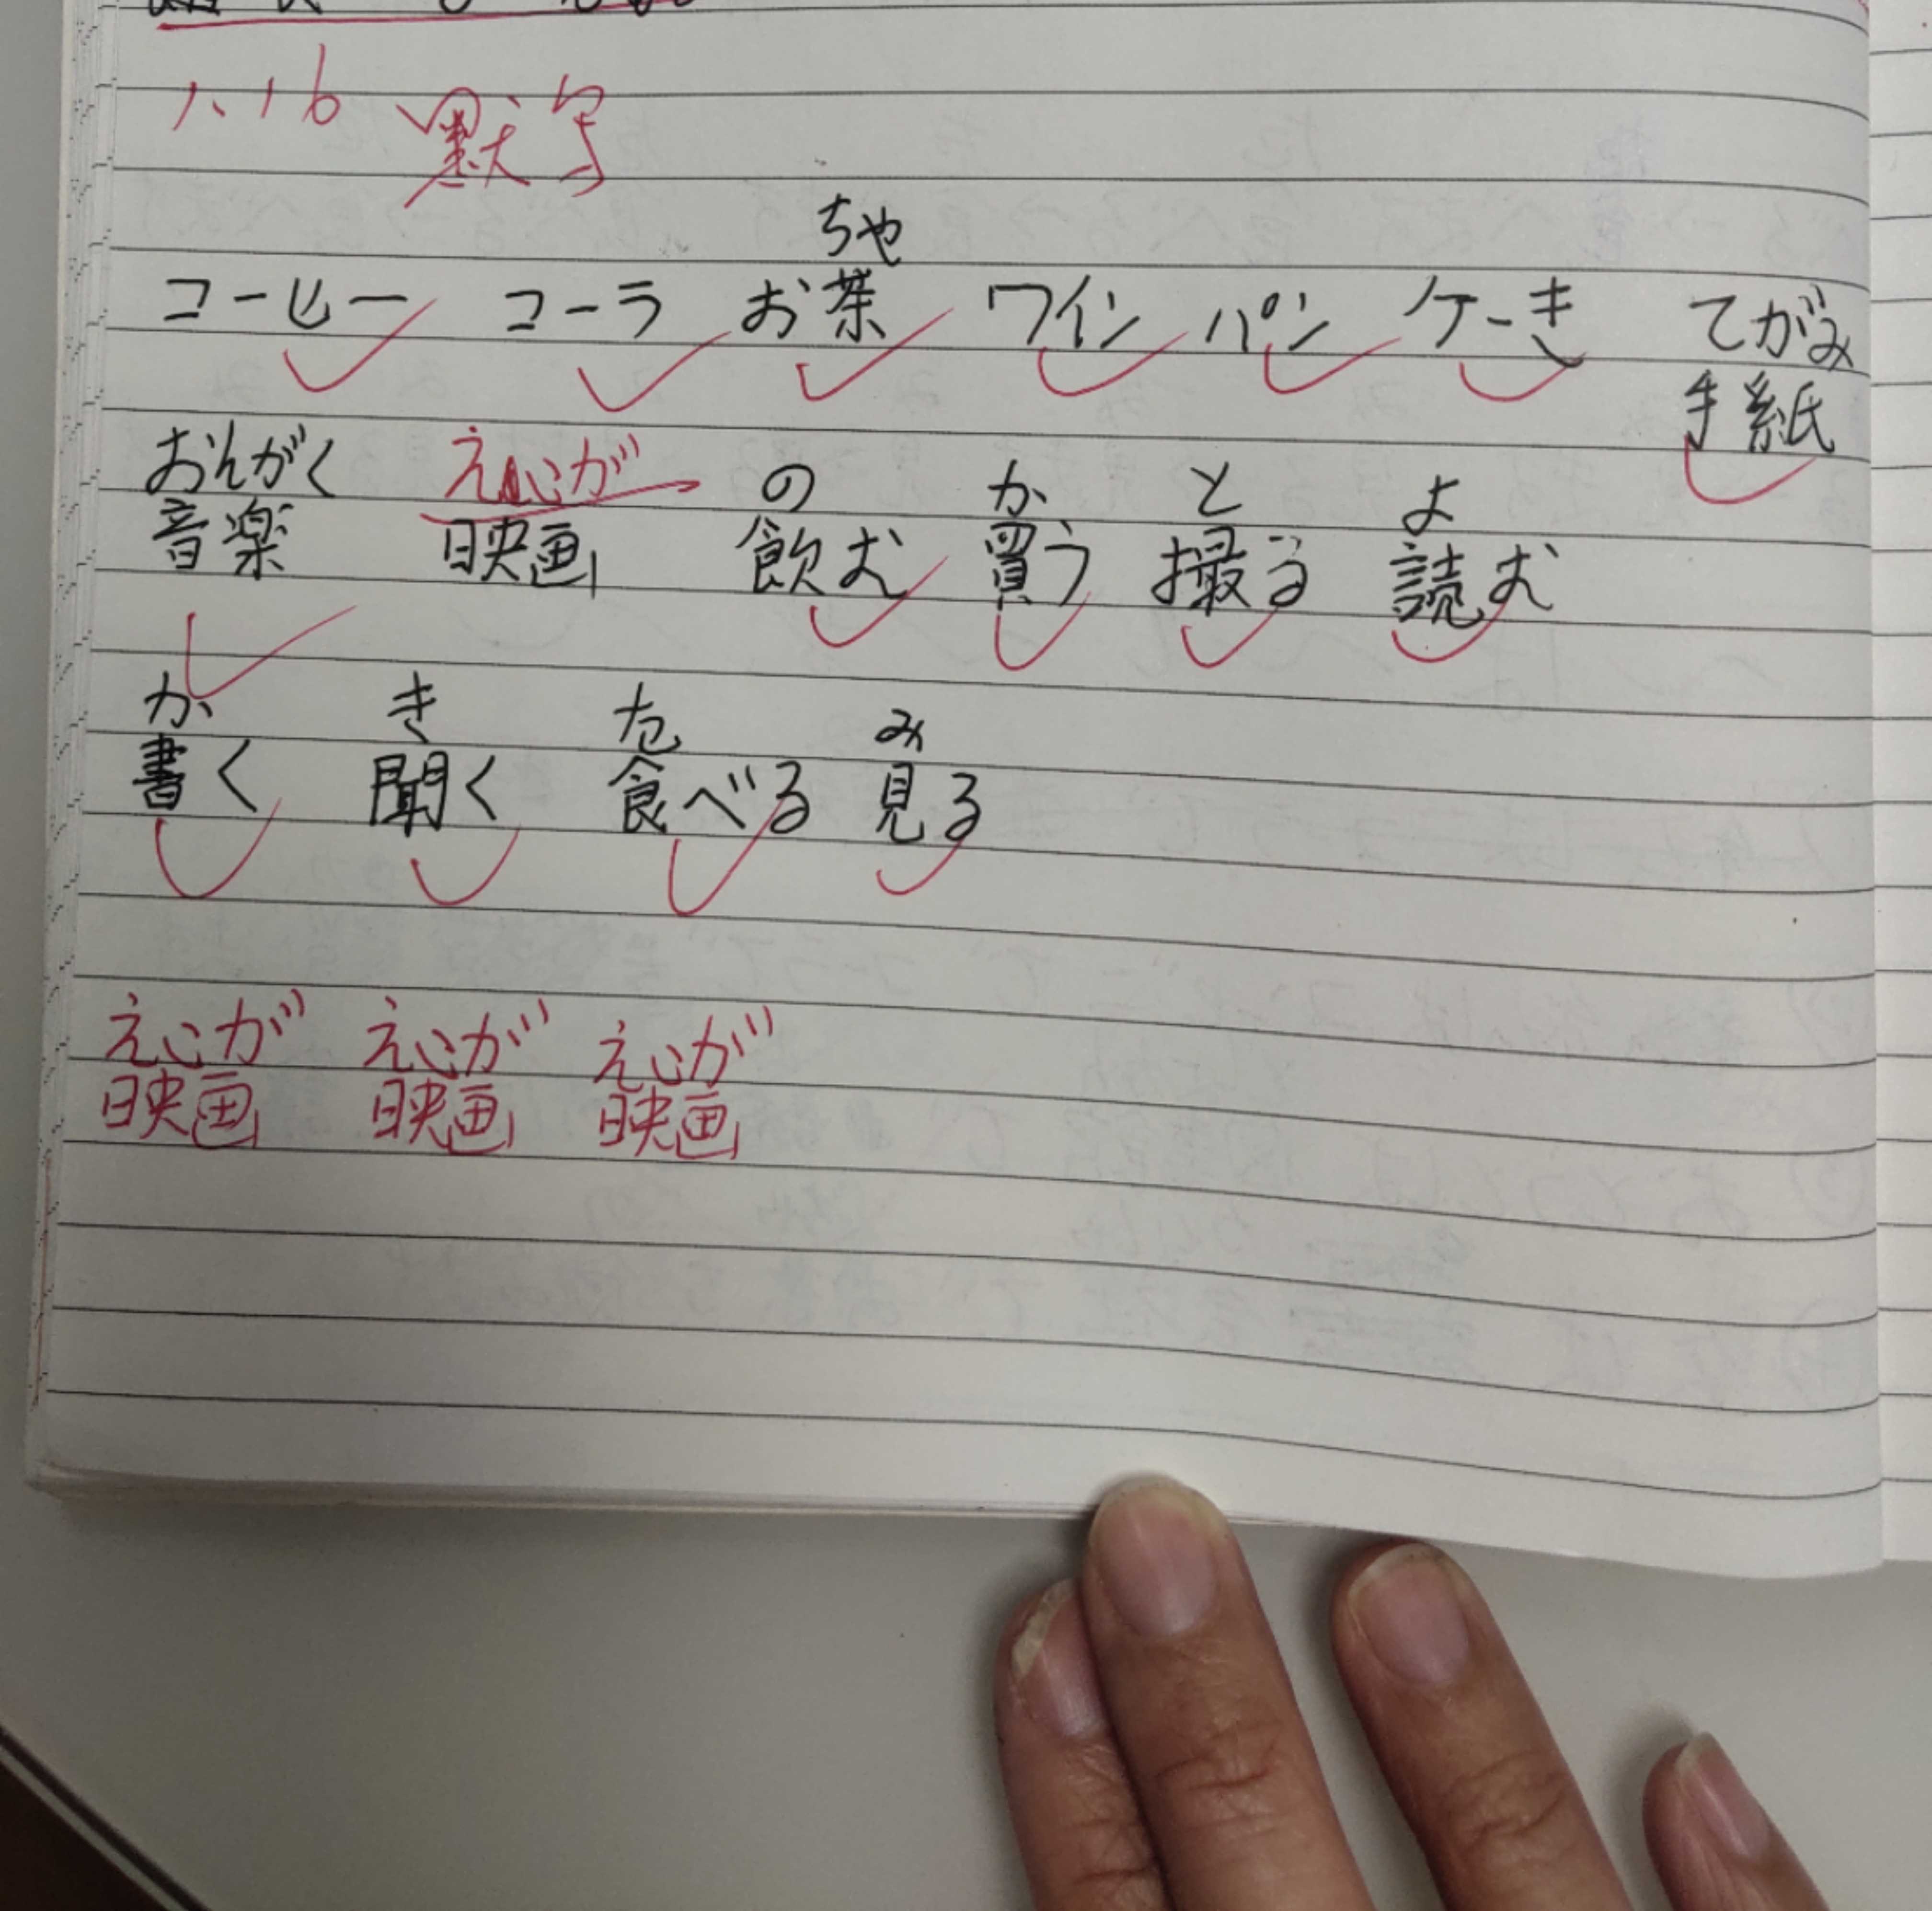 1.16 默写
ちゃ
コーヒー コーラ お茶 ワイン パン ケーき てがみ
手紙
おんがく えいが の か と よ
音楽 映画 飲む 買う 撮る 読む
か き た み
書く 聞く 食べる 見る
えいが えいが えいが
映画 映画 映画